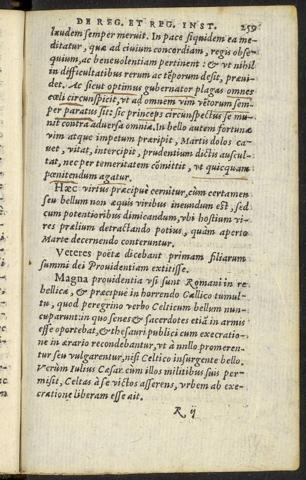 DE REG. ET REG. INST. 259
laudem semper meruit. In pace siquidem ea me-
ditatur, quæ ad ciuium concordiam, regis obse-
quium, ac beneuolentiam pertinent: & vt nihil
in difficultatibus rerum ac tẽporum desit, præui-
det. Ac sicut optimus gubernator plagas omnes
cœli circunspicit, vt ad omnem vim vẽtorum sem-
per paratus sit: sic princeps circunspectus se mu-
nit contra aduersa omnia. In bello autem fortunæ
vim atque impetum præripit, Martis dolos ca-
uet, vitat, intercipit, prudentium dictis auscul-
tat, nec per temeritatem cõmittit, vt quicquam
pœnitendum agatur.
Hæc virtus præcipuè cernitur, cùm certamen
seu bellum non æquis viribus ineundum est, sed
cum potentioribus dimicandum, vbi hostium vi-
res prælium detractando potius, quàm aperto
Marte decernendo conteruntur.
Veteres poëtæ dicebant primam filiarum
summi dei Prouidentiam extitisse.
Magna prouidentia vsi sunt Romani in re
bellica, & præcipuè in horrendo Gallico tumul-
tu, quod peregrino verbo Celticum bellum nun-
cuparunt: in quo senes & sacerdotes etiã in armis
esse oportebat, & thesauri publici cum execratio-
ne in ærario recondebantur, vt à nullo promeren-
tur seu vulgarentur, nisi Celtico insurgente bello.
Verùm Iulius Cæsar cùm illos militibus suis per-
misit, Celtas à se victos asserens, vrbem ab exe-
cratione liberam esse ait.
R ij